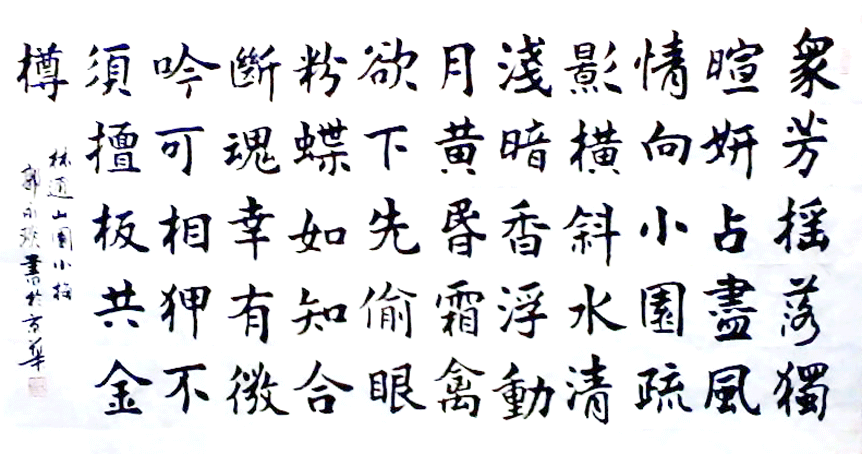 衆芳摇落獨
暄妍占盡風
情向小園疏
影橫斜水清
淺暗香浮動
月黄昬霜禽
欲下先偷眼
粉蝶如知合
斷魂幸有微
吟可相狎不
須檀板共金
樽
林逋山園小梅
書於京華